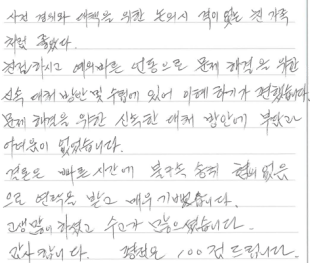 사건 경위와 대책을 위한 논의시 격이 없는 친 가족
처럼 좋았다.
친절하시고 예의바른 언행으로 문제 해결을 위한
신속 대처 방안 및 수립에 있어 이해하기가 편했습니다.
문제 해결을 위한 신속한 대처 방안에 부담과
어려움이 없었습니다.
결론은 빠른 시간에 불구속 송치 혐의 없음
으로 연락을 받고 매우 기뻤습니다.
고생많이 하셨고 수고가 많으셨습니다.
감사합니다. 평점은 100점 드립니다.